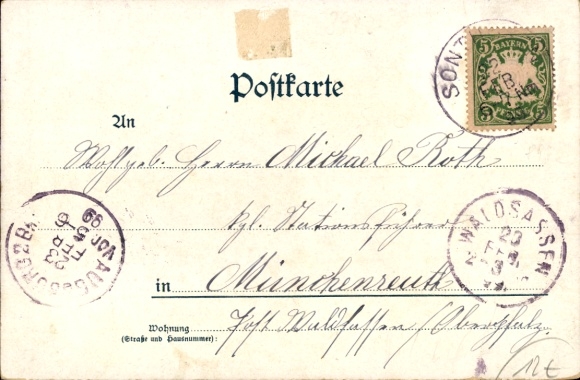 5 BAYERN 5
SONT
Postkarte
An
Wohlgeb. Herrn Michael Roth
kgl. Stationsführer
in Münchenreuth
Wohnung
(Straße und Hausnummer):
Post Waldsassen / Oberpfalz
WALDSASSEN
23
FEB
AUGSBURG 2 B.
23
FEB
99
12€